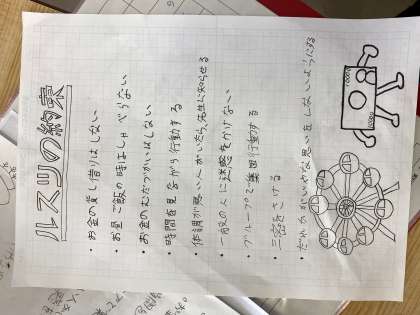 ルスツの約束
・お金の貸し借りはしない
・お昼ご飯の時はしゃべらない
・お金のむだづかいはしない
・時間を見ながら行動する
・体調が悪い人がいたら、先生に知らせる
・一般の人に迷惑をかけない
・グループで集団行動する
・三密をさける
・だれかがいやな思いをしないようにする